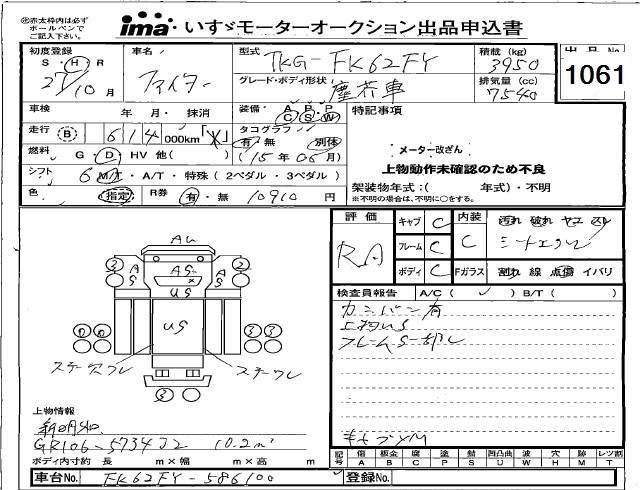 ㊟赤太枠内は必ず
ボールペンで
ご記入下さい。
ima いすゞモーターオークション出品申込書
初度登録
S・H・R
27/10月
車名
ファイター
型式
TKG-FK62FY
積載 (kg)
3950
グレード・ボディ形状
塵芥車
排気量 (cc)
7540
出品No.
1061
車検 年・月・抹消
装備・A B P
C S W
特記事項
走行 B 614 000km
タコグラフ
有・無 別体
(15年06月)
メーター改ざん
燃料 G・D・HV 他( )
上物動作未確認のため不良
シフト 6 M/T・A/T・特殊(2ペダル・3ペダル)
架装物年式:( 年式)・不明
※不明の場合は、不明に○をする。
色 指定 R券 有・無 10910円
評価
RA
キャブ C
フレーム C
ボディ C
内装 C
Fガラス
汚れ 破れ ヤエ スレ
割れ 線 点傷 イバリ
検査員報告 A/C( ✓ ) B/T( )
カンバン有
上物US
フレームS一部
AU
3 A S AS A S 2
US
US
3
上物情報
新明和
GR106-5734J2 10.2m³
ボディ内寸約 長 m×幅 m×高 m
記号 傷 A 板金 B 腐 C 塗 P 錆 S 凹凸曲 U 波 W 穴 H 跡 M レツ割 T
車台No. FK62FY-586100
登録No.